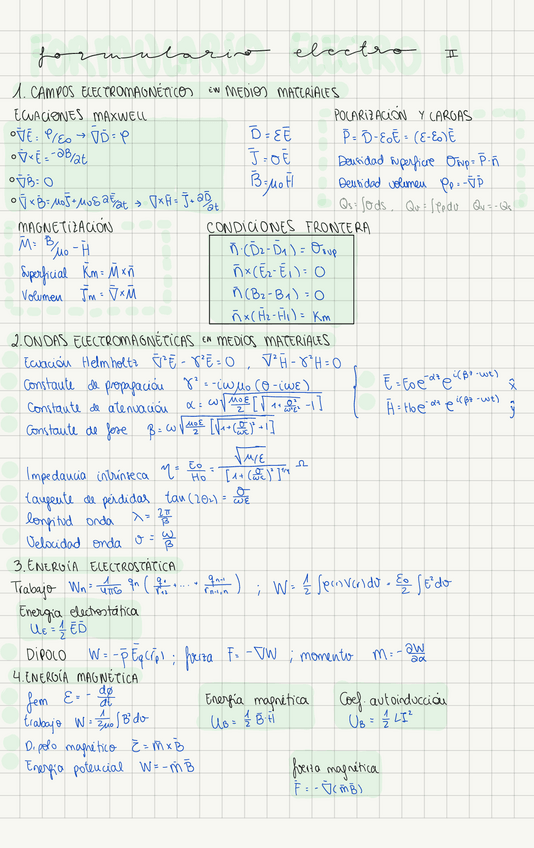 formulario electro II
1. CAMPOS ELECTROMAGNÉTICOS en MEDIOS MATERIALES
ECUACIONES MAXWELL
∇̄Ē = ρ/ε₀ → ∇̄D̄ = ρ
∇̄×Ē = -∂B̄/∂t
∇̄B̄ = 0
∇̄×B̄ = μ₀J̄ + μ₀ε ∂Ē/∂t → ∇̄×H̄ = J̄ + ∂D̄/∂t
D̄ = εĒ
J̄ = σĒ
B̄ = μ₀H̄
POLARIZACIÓN Y CARGAS
P̄ = D̄ - ε₀Ē = (ε-ε₀)Ē
Densidad superficie σsup = P̄·n̄
Densidad volumen ρp = -∇̄P̄
Qs = ∫σds, Qv = ∫ρdv Qv = -Qs
MAGNETIZACIÓN
M̄ = B̄/μ₀ - H̄
Superficial K̄m = M̄×n̄
Volumen J̄m = ∇̄×M̄
CONDICIONES FRONTERA
n̄·(D̄2-D̄1) = σsup
n̄×(Ē2-Ē1) = 0
n̄(B2-B1) = 0
n̄×(H̄2-H̄1) = Km
2. ONDAS ELECTROMAGNÉTICAS en MEDIOS MATERIALES
Ecuación Helmholtz ∇̄²Ē - γ²Ē = 0, ∇̄²H̄ - γ²H = 0
Constante de propagación γ² = -iωμ₀(σ-iωε)
Constante de atenuación α = ω√(μ₀ε/2 [√(1+σ²/ω²ε²) -1])
Constante de fase β = ω√(μ₀ε/2 [√(1+(σ/ωε)²) +1])
Ē = E₀e^-αz e^i(βz-ωt) x̂
H̄ = H₀e^-αz e^i(βz-ωt) ŷ
Impedancia intrínseca η = E₀/H₀ = √(μ/ε) / [1+(σ/ωε)²]^1/4 Ω
tangente de pérdidas tan(2θ₂) = σ/ωε
longitud onda λ = 2π/β
Velocidad onda v = ω/β
3. ENERGÍA ELECTROSTÁTICA
Trabajo Wn = 1/4πε₀ qn (q1/r12 + ... + qn-1/rn-1,n) ; W = 1/2 ∫ρ(r)V(r)dv = ε₀/2 ∫E²dv
Energía electrostática
UE = 1/2 ĒD̄
DIPOLO W = -p̄ Ēq(r̄p) ; fuerza F̄ = -∇W ; momento M = -∂W/∂α
4. ENERGÍA MAGNÉTICA
fem ε = - dφ/dt
trabajo W = 1/2μ₀ ∫B²dv
Dipolo magnético τ̄ = m̄×B̄
Energía potencial W = -m̄B̄
Energía magnética
UB = 1/2 B̄·H̄
Coef. autoinducción
UB = 1/2 LI²
fuerza magnética
F̄ = -∇̄(m̄B̄)